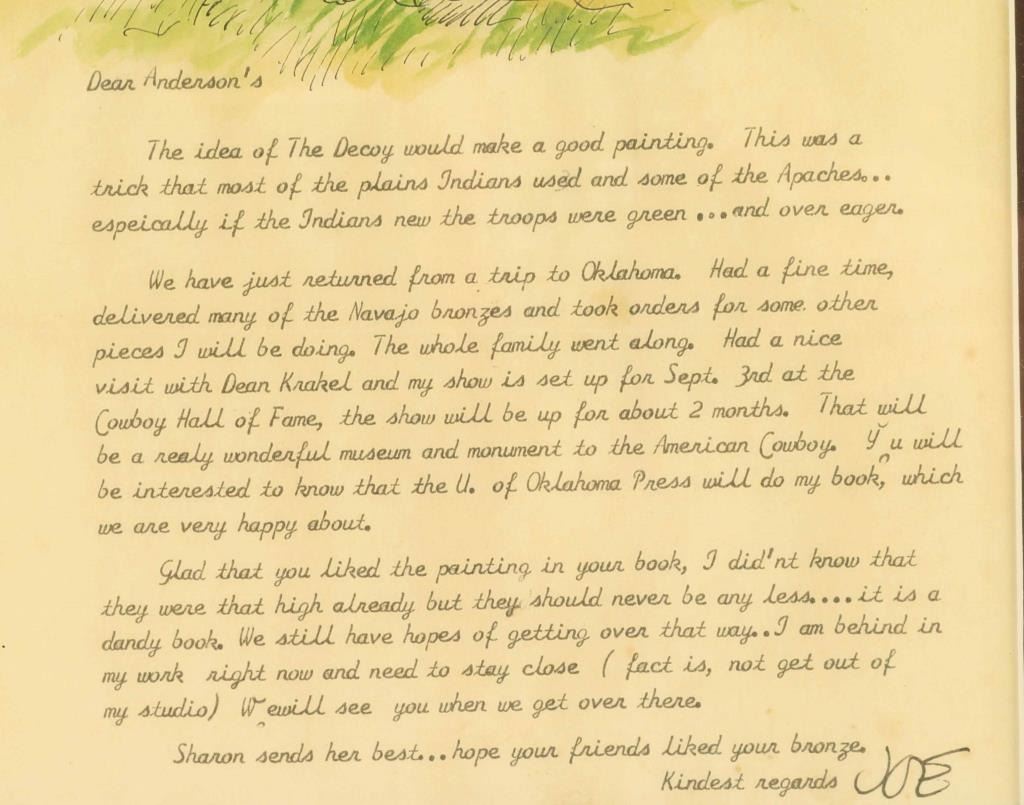 Dear Anderson's
The idea of The Decoy would make a good painting. This was a
trick that most of the plains Indians used and some of the Apaches...
espeically if the Indians new the troops were green ...and over eager.
We have just returned from a trip to Oklahoma. Had a fine time,
delivered many of the Navajo bronzes and took orders for some other
pieces I will be doing. The whole family went along. Had a nice
visit with Dean Krakel and my show is set up for Sept. 3rd at the
Cowboy Hall of Fame, the show will be up for about 2 months. That will
be a realy wonderful museum and monument to the American Cowboy. Y u will
be interested to know that the U. of Oklahoma Press will do my book, which
we are very happy about.
Glad that you liked the painting in your book, I did'nt know that
they were that high already but they should never be any less....it is a
dandy book. We still have hopes of getting over that way..I am behind in
my work right now and need to stay close ( fact is, not get out of
my studio) W ewill see you when we get over there.
Sharon sends her best...hope your friends liked your bronze.
Kindest regards JOE